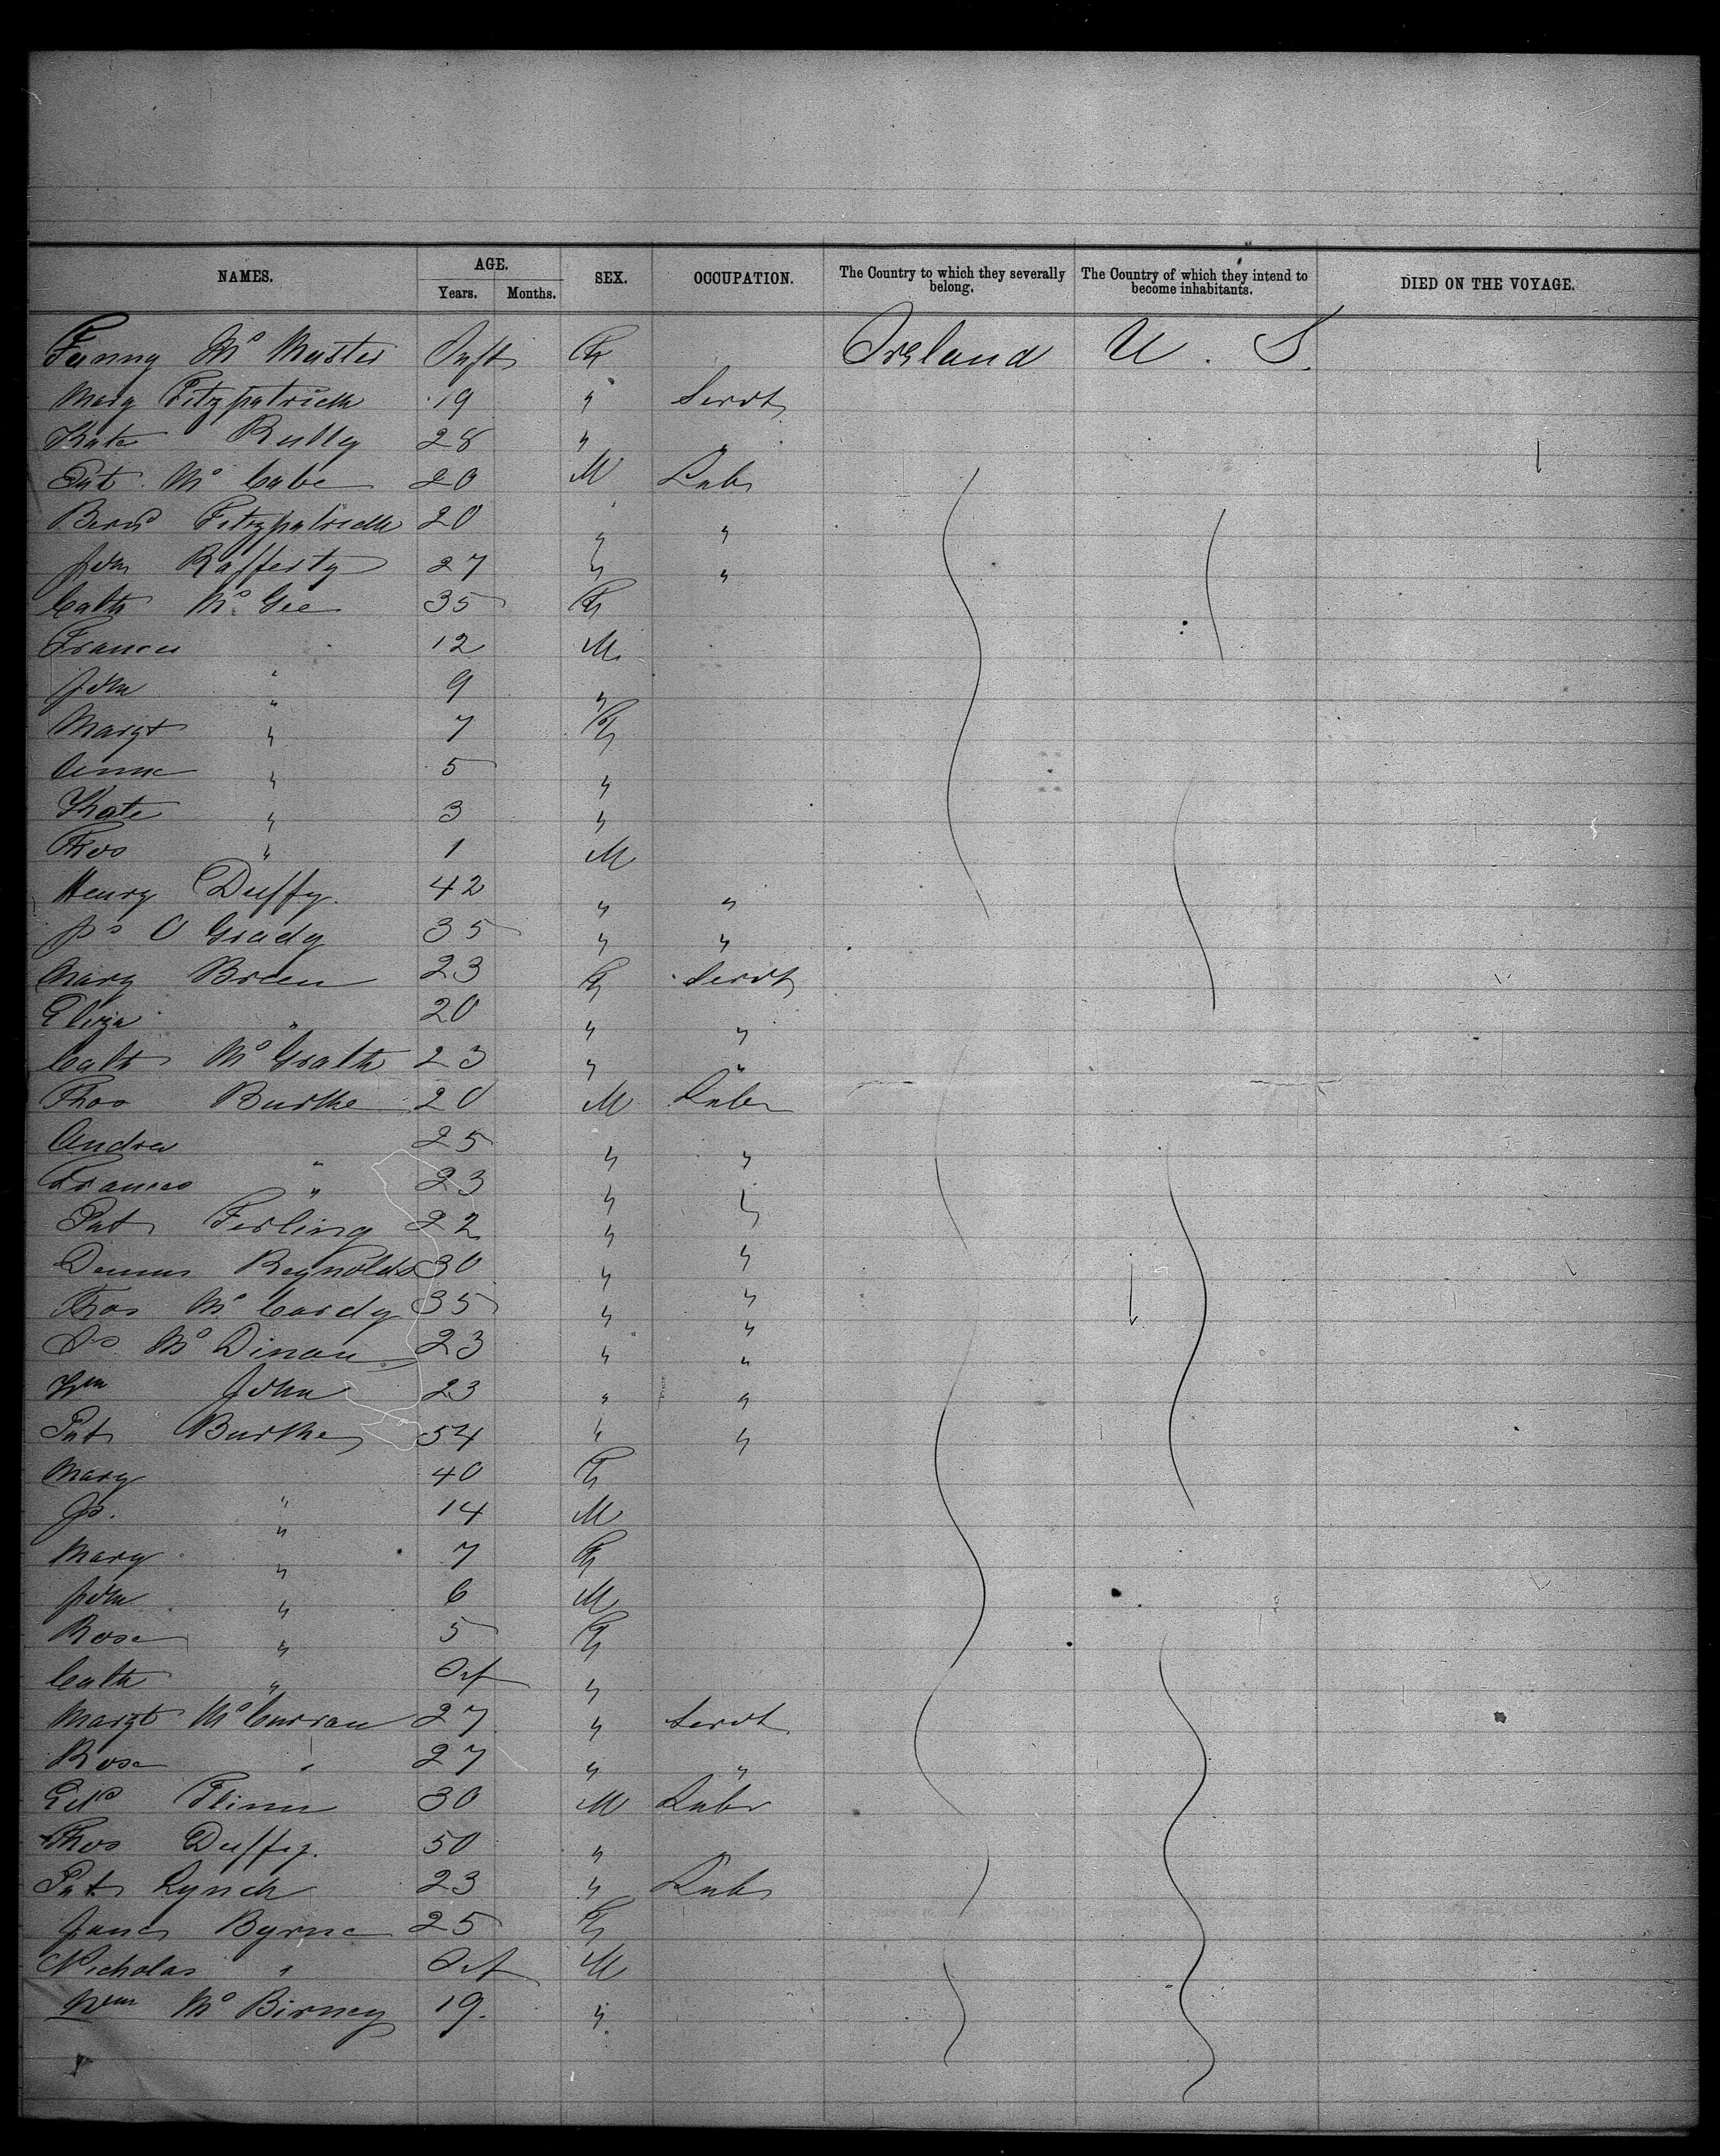 NAMES. AGE. SEX. OCCUPATION. The Country to which they severally belong. The Country of which they intend to become inhabitants. DIED ON THE VOYAGE.
Years. Months.
Fanny Mc Master Inft F Ireland U. S.
Mary Fitzpatrick 19 " Servt
Kate Rutty 28 " "
Pat Mc Cabe 20 M Labr
Bernd Fitzpatrick 20 " "
John Rafferty 27 " "
Cath Mc Gee 35 F
Frances 12 M
John " 9 "
Margt " 7 F
Anne " 5 "
Kate " 3 "
Thos " 1 M
Henry Duffy. 42 " "
Js O Grady 35 " "
Mary Breen 23 F Servt
Eliza " 20 " "
Cath Mc Grath 23 " "
Thos Burke 20 M Labr
Andrew " 25 " "
Frances " 23 " "
Pat Ferling 22 " "
Dennis Reynolds 30 " "
Thos Mc Cardy 35 " "
Mc Dinau 23 " "
Wm John 23 " "
Pat Burke 54 " "
Mary " 40 F
Js. " 14 M
Mary " 7 F
John " 6 M
Rose " 5 F
Cath " Inf "
Margt Mc Curran 27 " Servt
Rose " 27 " "
Edd Flinn 30 M Labr
Thos Duffy. 50 "
Pat Lynch 23 " Labr
Jane Byrne 25 F
Nicholas " Inf M
Wm Mc Birney 19. "